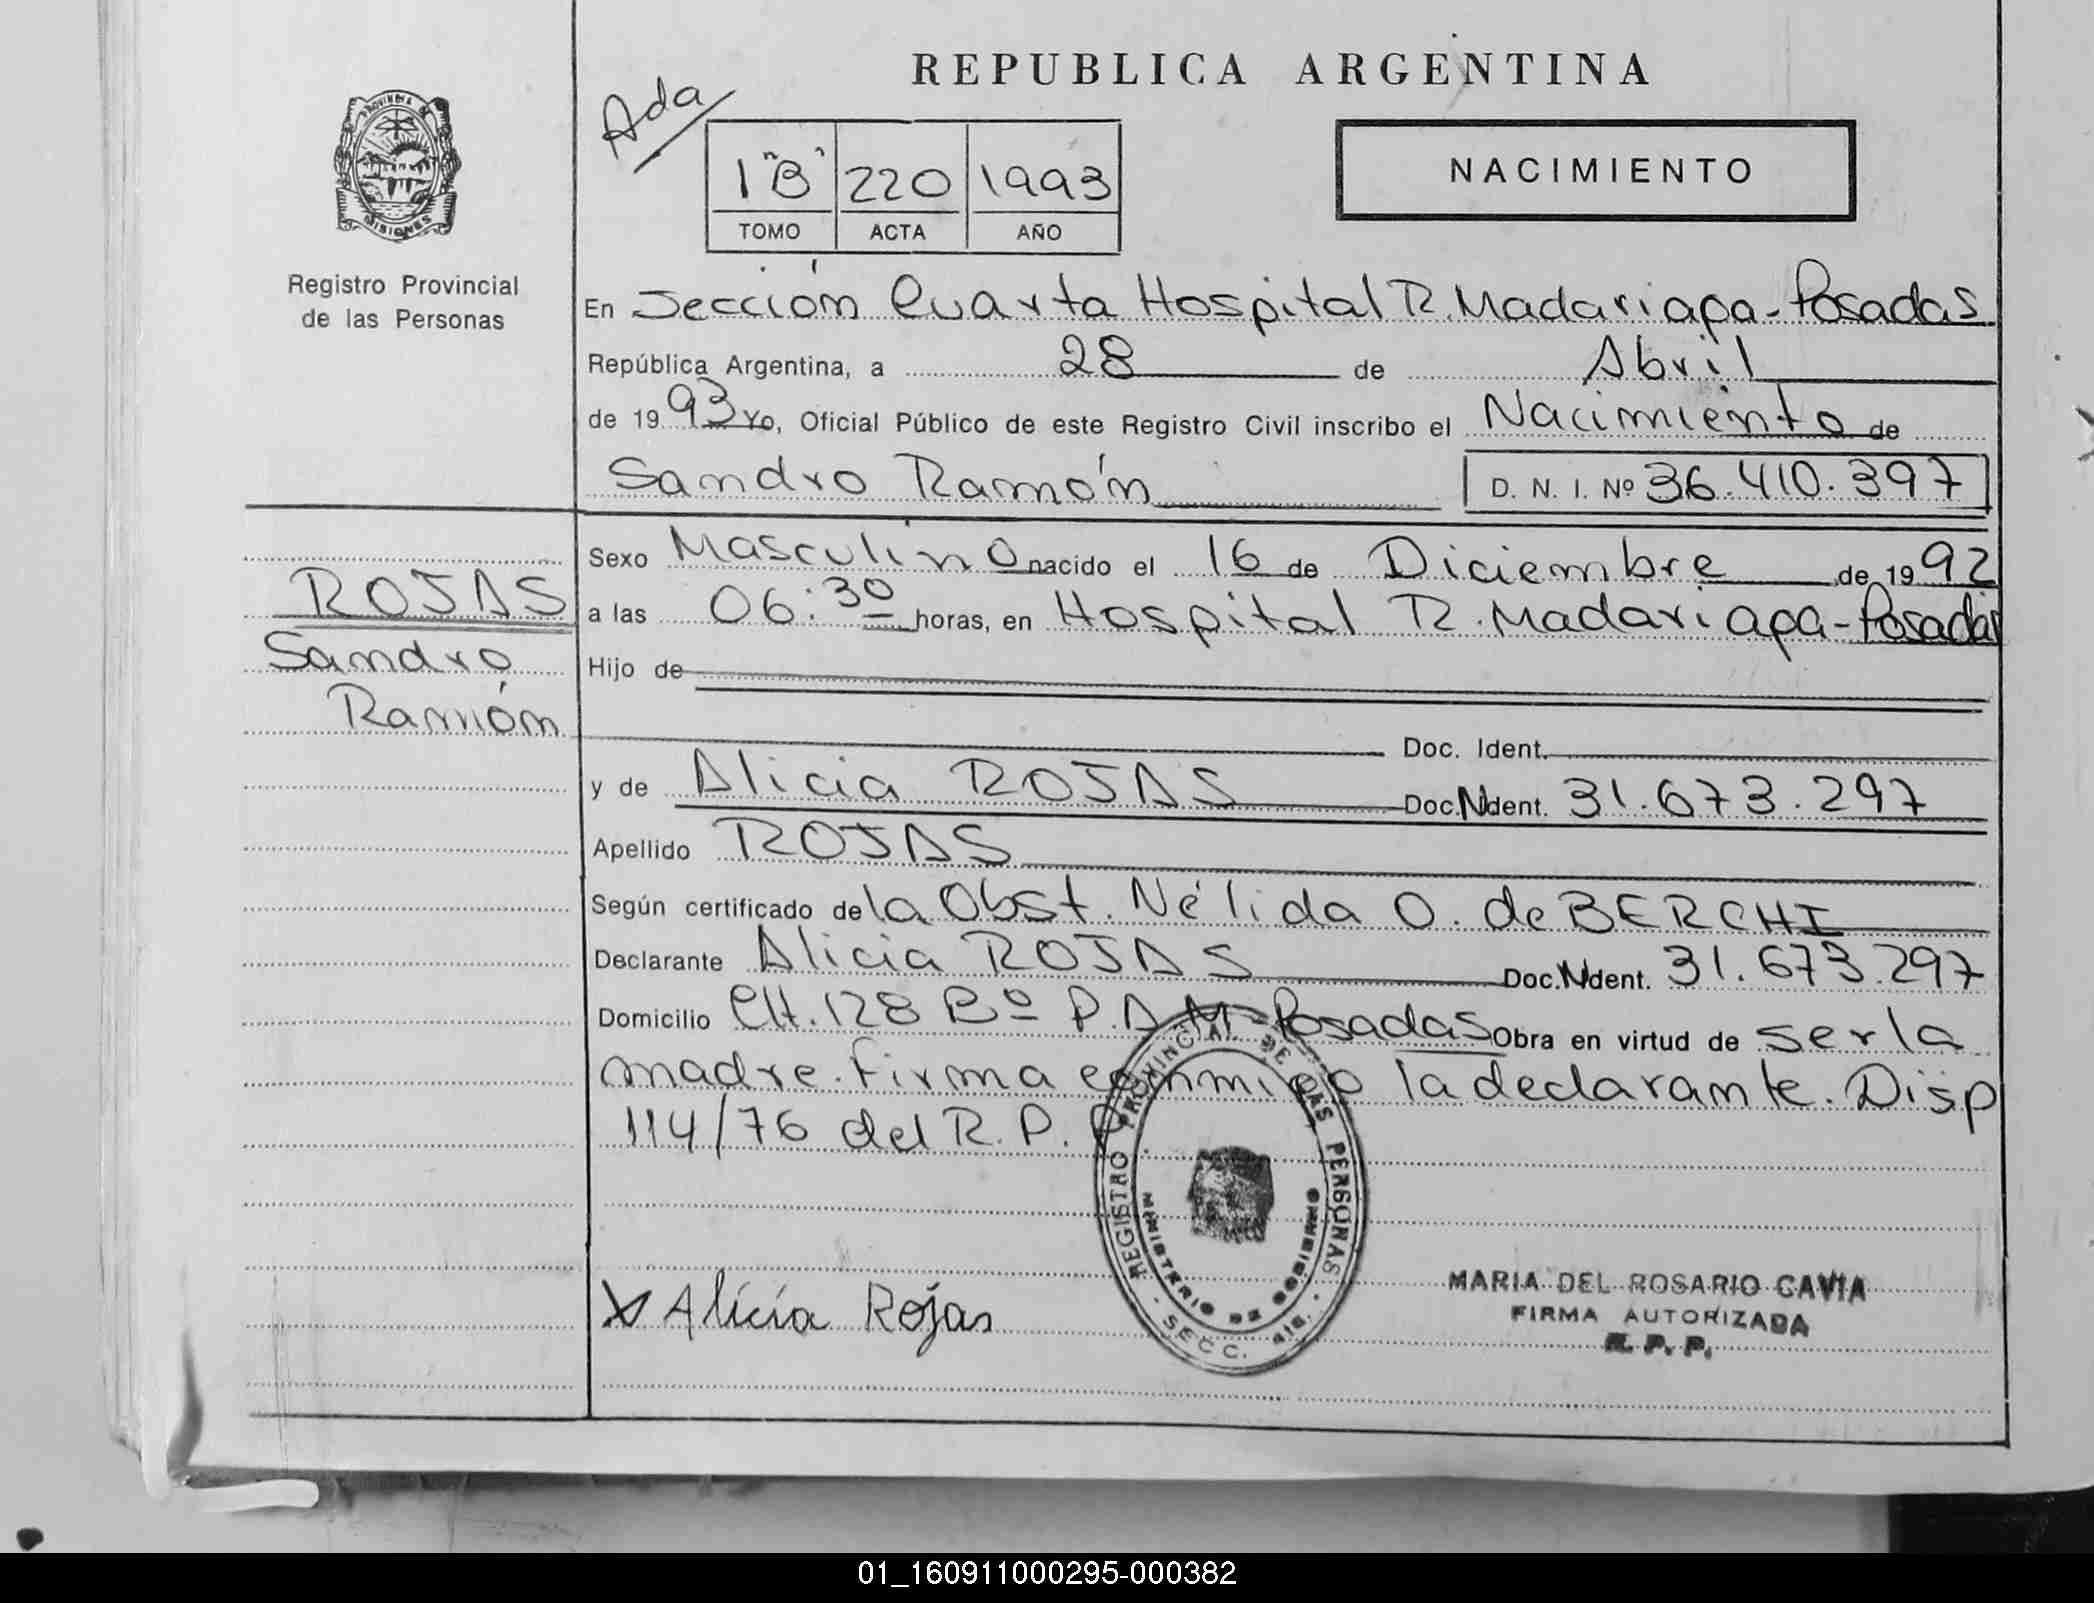 REPUBLICA ARGENTINA
Ada
1 "B" 220 1993
TOMO ACTA AÑO
NACIMIENTO
PROVINCIA DE
MISIONES
Registro Provincial
de las Personas
En Sección Cuarta Hospital R. Madariaga - Posadas
República Argentina, a 28 de Abril
de 1993 Yo, Oficial Público de este Registro Civil inscribo el Nacimiento de
Sandro Ramón D. N. I. Nº 36.410.397
ROJAS
Sandro
Ramón
Sexo Masculino nacido el 16 de Diciembre de 1992
a las 06:30 horas, en Hospital R. Madariaga - Posadas
Hijo de
Doc. Ident.
y de Alicia ROJAS Doc. Ident. 31.673.297
Apellido ROJAS
Según certificado de la Obst. Nélida O. de BERCHI
Declarante Alicia ROJAS Doc. Ident. 31.673.297
Domicilio CH. 128 Bº P.A.M - Posadas Obra en virtud de ser la
madre. Firma conmigo la declarante. Disp
114/76 del R. P. P
REGISTRO PROVINCIAL DE LAS PERSONAS
MINISTERIO DE GOBIERNO
SECC. 4ta.
X Alicia Rojas
MARIA DEL ROSARIO CAVIA
FIRMA AUTORIZADA
R. P. P.
01_160911000295-000382